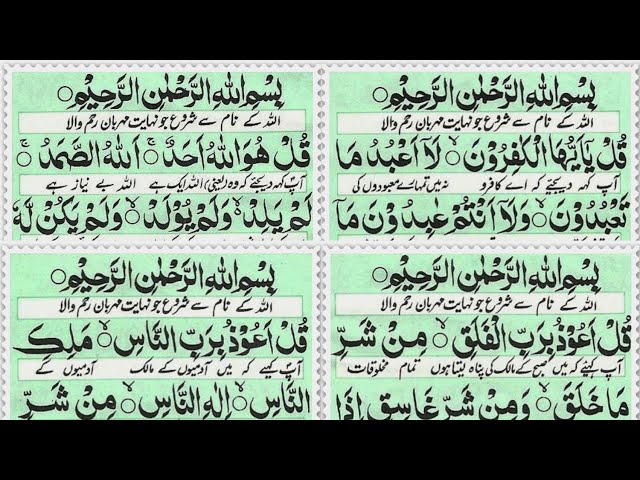 بِسْمِ اللهِ الرَّحْمٰنِ الرَّحِيْمِ○
اللہ کے نام سے شروع جو نہایت مہربان رحم والا
قُلْ يٰٓاَيُّهَا الْكٰفِرُوْنَ○ لَآ اَعْبُدُ مَا
آپ کہہ دیجئے کہ اے کافرو نہ میں تمہارے معبودوں کی
تَعْبُدُوْنَ○ وَلَآ اَنْتُمْ عٰبِدُوْنَ مَآ
بِسْمِ اللهِ الرَّحْمٰنِ الرَّحِيْمِ○
اللہ کے نام سے شروع جو نہایت مہربان رحم والا
قُلْ هُوَ اللهُ اَحَدٌ○ اَللهُ الصَّمَدُ○
آپ کہہ دیجئے کہ وہ (یعنی) اللہ ایک ہے اللہ بے نیاز ہے
لَمْ يَلِدْ○ وَلَمْ يُوْلَدْ○ وَلَمْ يَكُنْ لَّهٗ
بِسْمِ اللهِ الرَّحْمٰنِ الرَّحِيْمِ○
اللہ کے نام سے شروع جو نہایت مہربان رحم والا
قُلْ اَعُوْذُ بِرَبِّ الْفَلَقِ○ مِنْ شَرِّ
آپ کہیئے کہ میں صبح کے مالک کی پناہ لیتا ہوں تمام مخلوقات
مَا خَلَقَ○ وَمِنْ شَرِّ غَاسِقٍ اِذَا
بِسْمِ اللهِ الرَّحْمٰنِ الرَّحِيْمِ○
اللہ کے نام سے شروع جو نہایت مہربان رحم والا
قُلْ اَعُوْذُ بِرَبِّ النَّاسِ○ مَلِكِ
آپ کہیئے کہ میں آدمیوں کے مالک آدمیوں کے
النَّاسِ○ اِلٰهِ النَّاسِ○ مِنْ شَرِّ